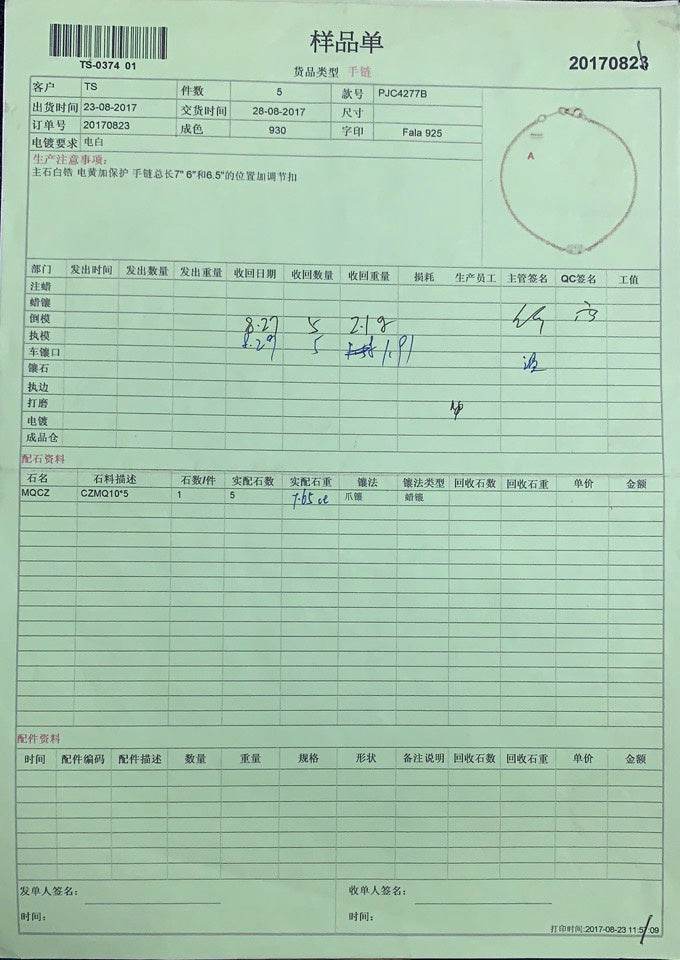 样品单
TS-0374 01
货品类型 手链
20170823
客户 TS 件数 5 款号 PJC4277B
出货时间 23-08-2017 交货时间 28-08-2017 尺寸
订单号 20170823 成色 930 字印 Fala 925
电镀要求 电白
生产注意事项:
主石白锆 电黄加保护 手链总长7" 6"和6.5"的位置加调节扣
A
部门 发出时间 发出数量 发出重量 收回日期 收回数量 收回重量 损耗 生产员工 主管签名 QC签名 工值
注蜡
蜡镶
倒模 8.27 5 2.18
执模 8.29 5 1.91
车镶口
镶石
执边
打磨
电镀
成品仓
配石资料
石名 石料描述 石数/件 实配石数 实配石重 镶法 镶法类型 回收石数 回收石重 单价 金额
MQCZ CZMQ10*5 1 5 7.65 ct 爪镶 蜡镶
配件资料
时间 配件编码 配件描述 数量 重量 规格 形状 备注说明 回收石数 回收石重 单价 金额
发单人签名: 收单人签名:
时间: 时间:
打印时间:2017-08-23 11:57:09